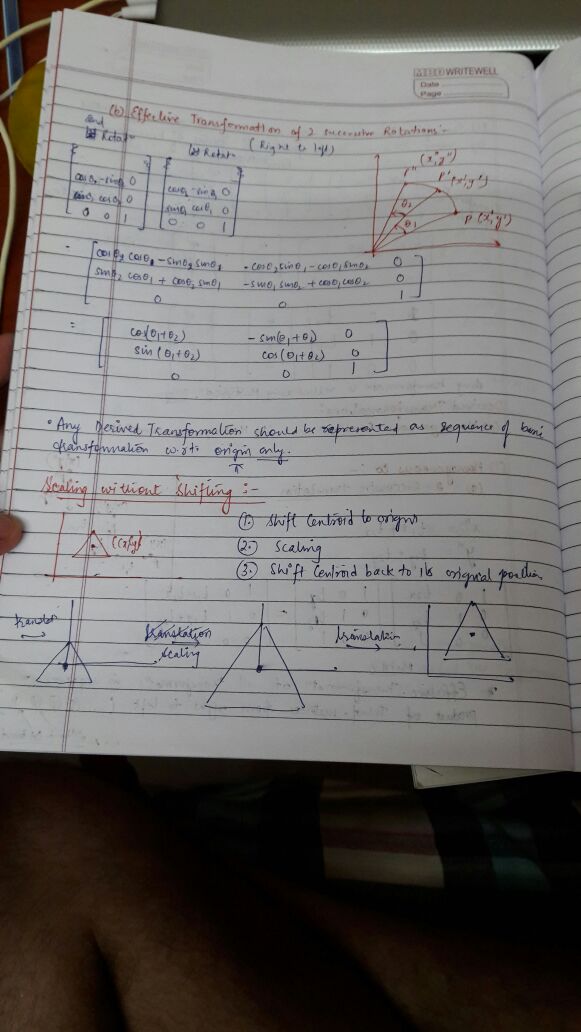 WRITEWELL
Date
Page
(b) Effective Transformation of 2 successive Rotations:-
2nd Rotatn 1st Rotatn (Right to left)
cosθ2 -sinθ2 0 cosθ1 -sinθ1 0
sinθ2 cosθ2 0 sinθ1 cosθ1 0
0 0 1 0 0 1
P" (x",y")
P' (x',y')
P (x,y)
θ2
θ1
cosθ2 cosθ1 - sinθ2 sinθ1 - cosθ2 sinθ1 - cosθ1 sinθ2 0
sinθ2 cosθ1 + cosθ2 sinθ1 - sinθ1 sinθ2 + cosθ1 cosθ2 0
0 0 1
= cos(θ1+θ2) - sin(θ1+θ2) 0
sin (θ1+θ2) cos(θ1+θ2) 0
0 0 1
• Any Derived Transformation should be represented as sequence of basic
transformation w.r.to origin only.
Scaling without Shifting :-
(x,y)
1. Shift Centroid to origin
2. Scaling
3. Shift Centroid back to its original position
translatn
translation
scaling
translation